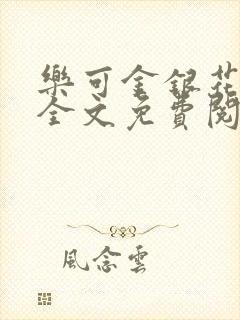 樂可金銀花
全文免費閱
風念雲